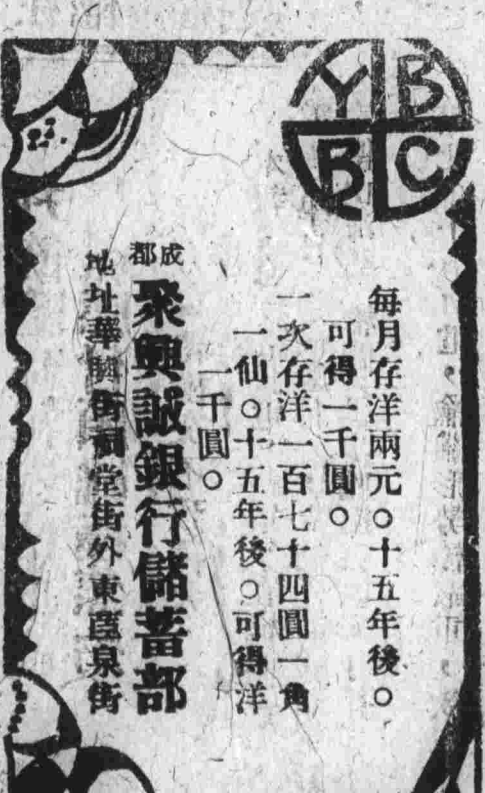 YBBC
每月存洋兩元。十五年後。
可得一千圓。
一次存洋一百七十四圓一角
一仙。十五年後。可得洋
一千圓。
成都
聚興誠銀行儲蓄部
地址華興街祠堂街外東薀泉街